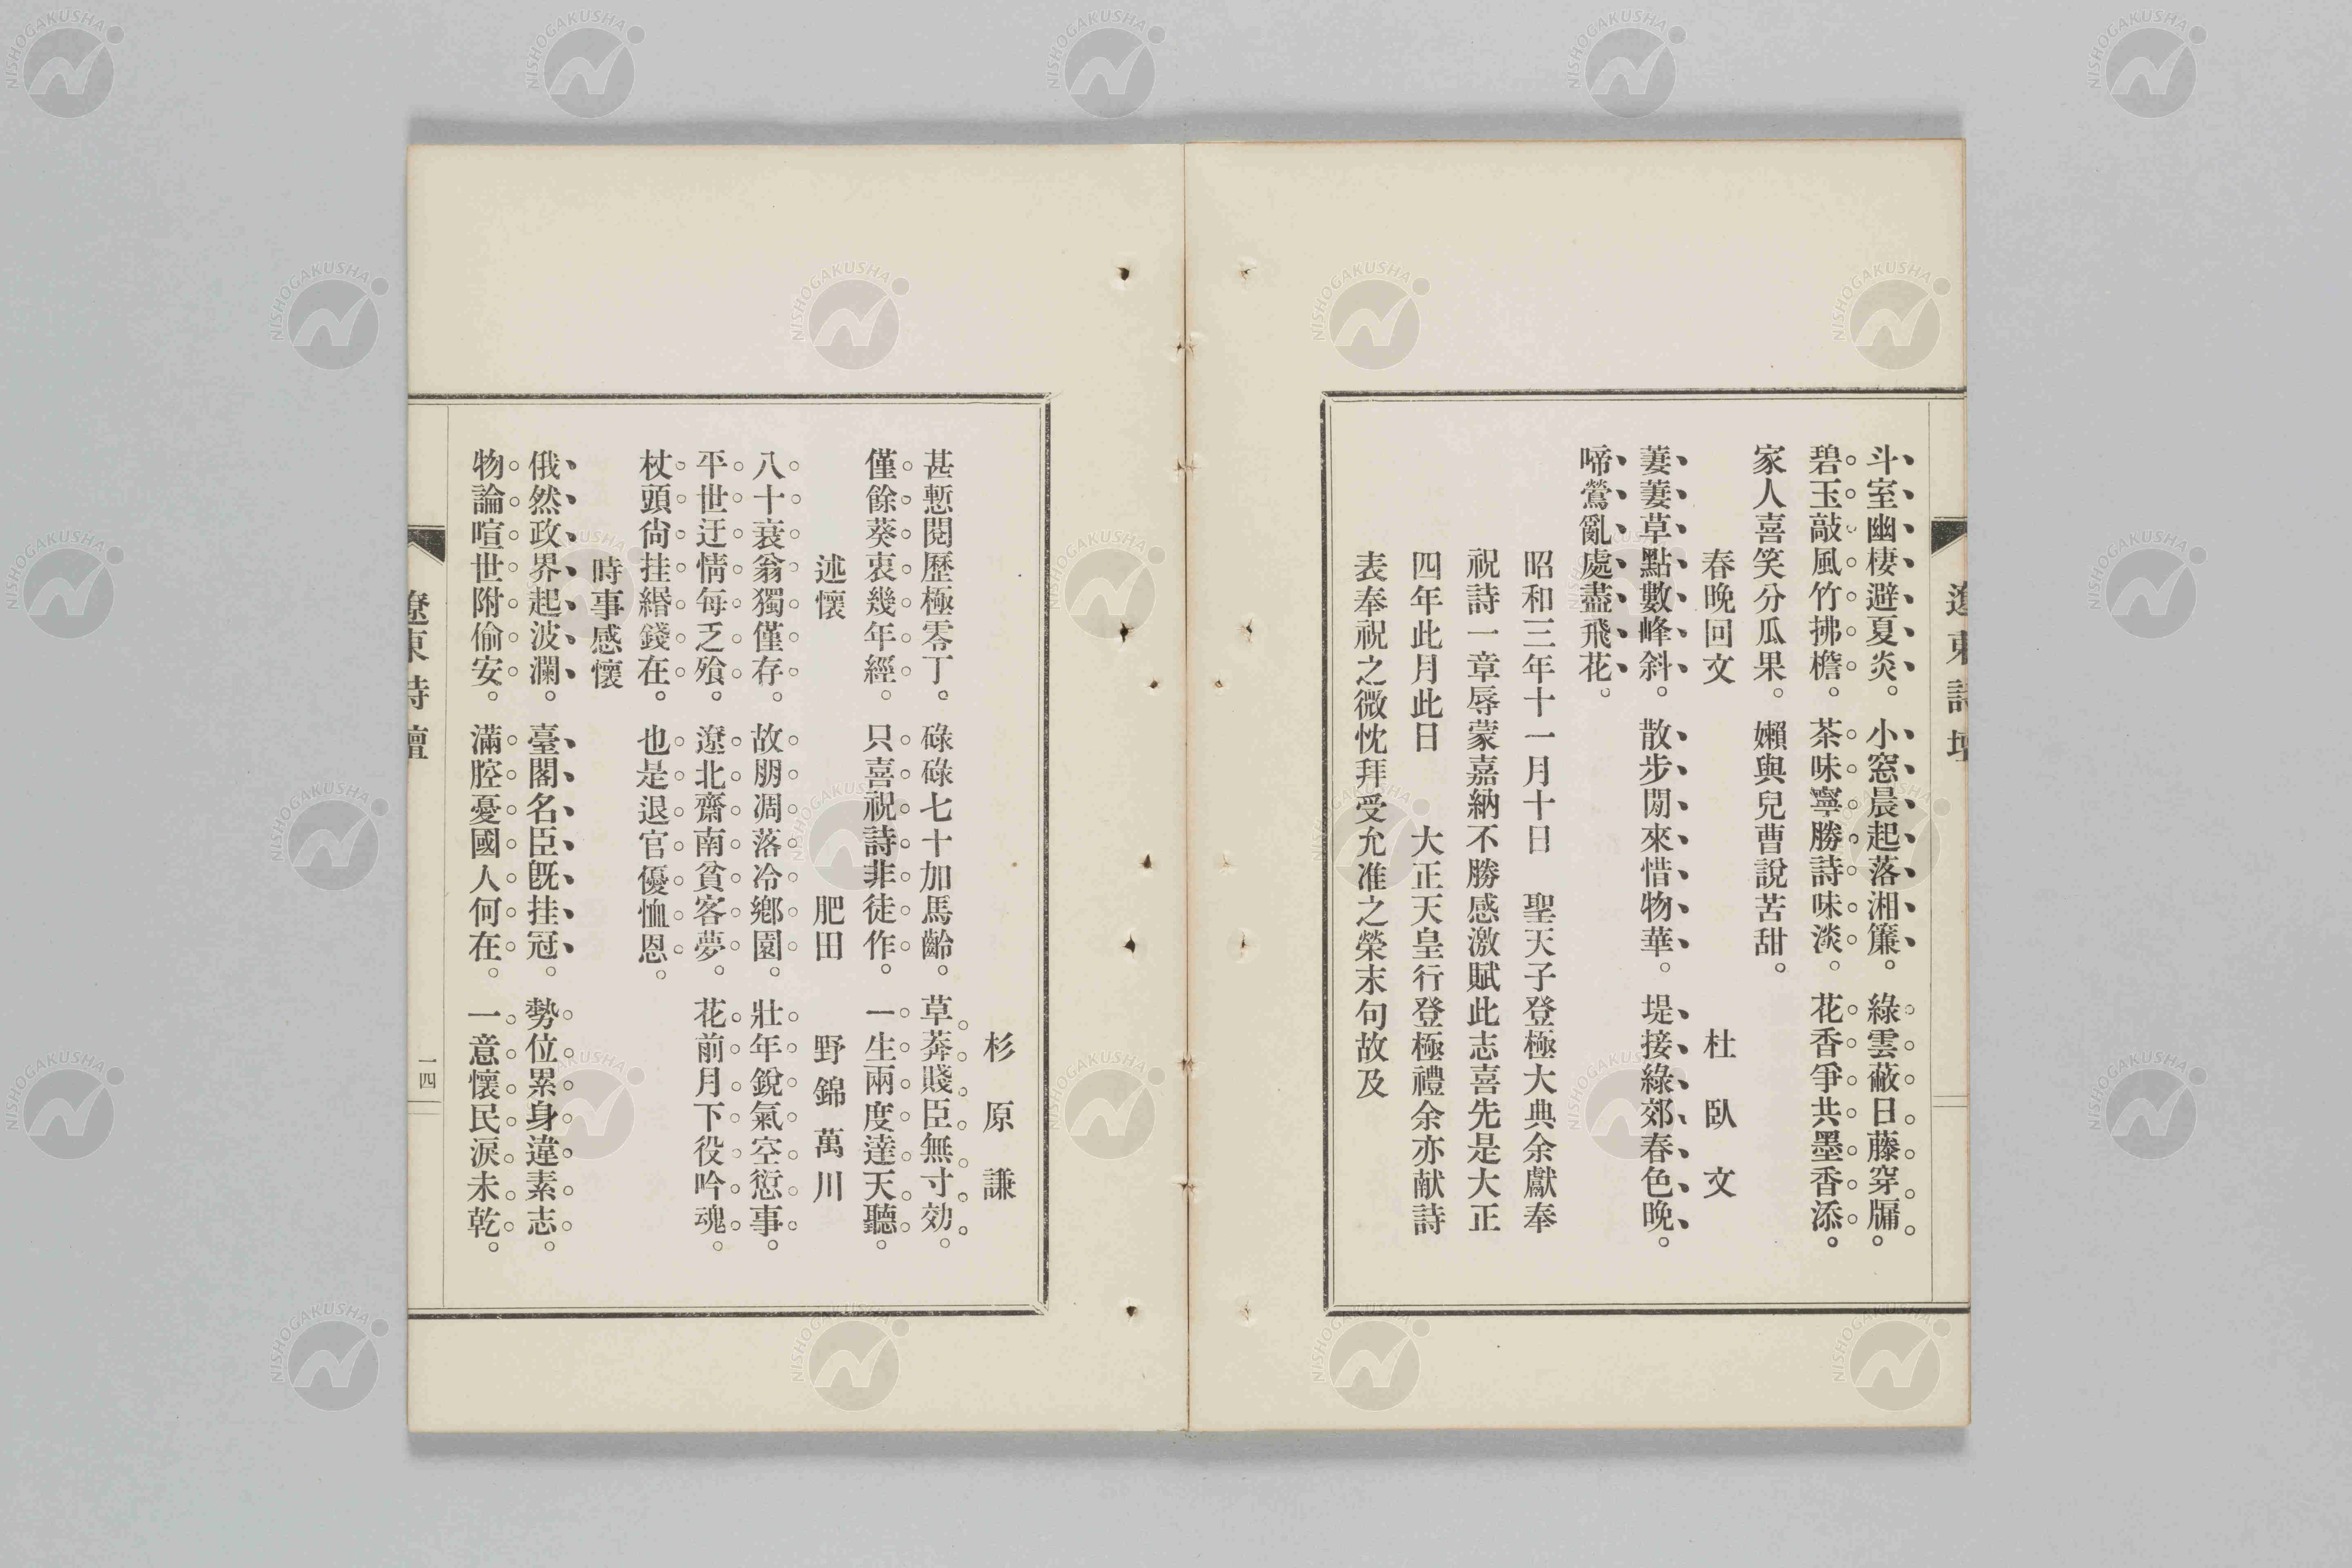 斗室幽棲避夏炎。小窓晨起落湘簾。綠雲蔽日藤穿牖。
碧玉敲風竹拂檐。茶味寧勝詩味淡。花香爭共墨香添。
家人喜笑分瓜果。嬾與兒曹說苦甜。
春晩回文　杜臥文
萋萋草點數峰斜。散步閒來惜物華。堤接綠郊春色晩。
啼鶯亂處盡飛花。
昭和三年十一月十日　聖天子登極大典余獻奉
祝詩一章辱蒙嘉納不勝感激賦此志喜先是大正
四年此月此日　大正天皇行登極禮余亦献詩
表奉祝之微忱拜受允准之榮末句故及
杉原謙
甚慙閱歷極零丁。碌碌七十加馬齡。草莽賤臣無寸効。
僅餘葵衷幾年經。只喜祝詩非徒作。一生兩度達天聽。
述懷　肥田　野錦萬川
八十衰翁獨僅存。故朋凋落冷鄕園。壯年銳氣空愆事。
平世迂情每乏飱。遼北齋南貧客夢。花前月下役吟魂。
杖頭尙挂緡錢在。也是退官優恤恩。
時事感懷
俄然政界起波瀾。臺閣名臣旣挂冠。勢位累身違素志。
物論喧世附偷安。滿腔憂國人何在。一意懷民淚未乾。
遼東詩壇
一四
NISHOGAKUSHA